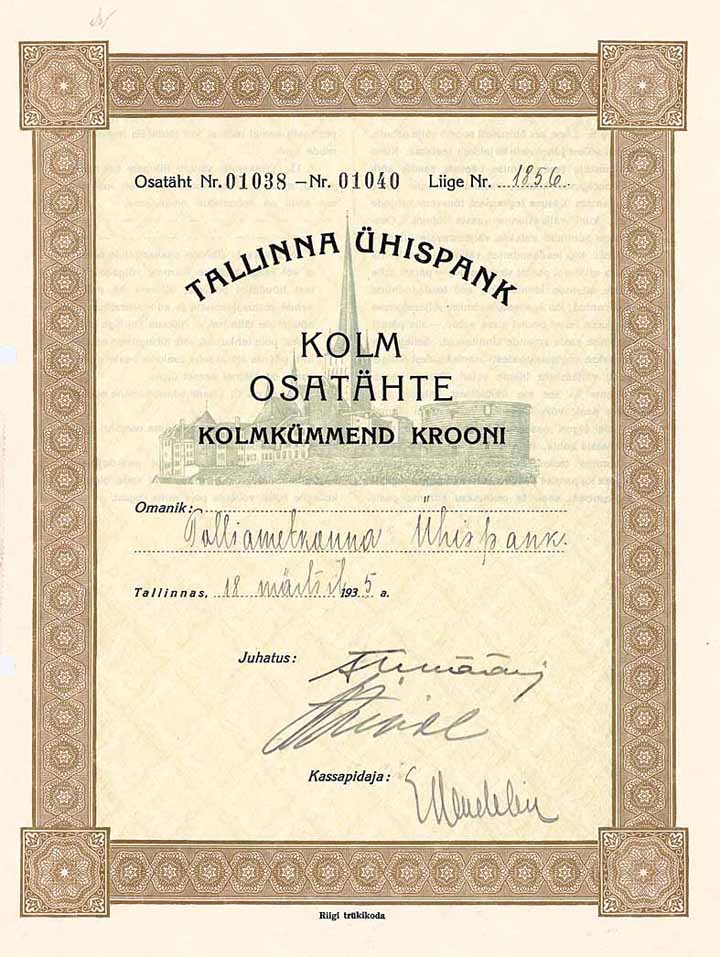 Osatäht Nr. 01038 – Nr. 01040 Liige Nr. 1856.
TALLINNA ÜHISPANK
KOLM
OSATÄHTE
KOLMKÜMMEND KROONI
Omanik:
Ühispank.
Tallinnas, 18 märtsil 1935 a.
Juhatus:
Kassapidaja:
Riigi trükikoda